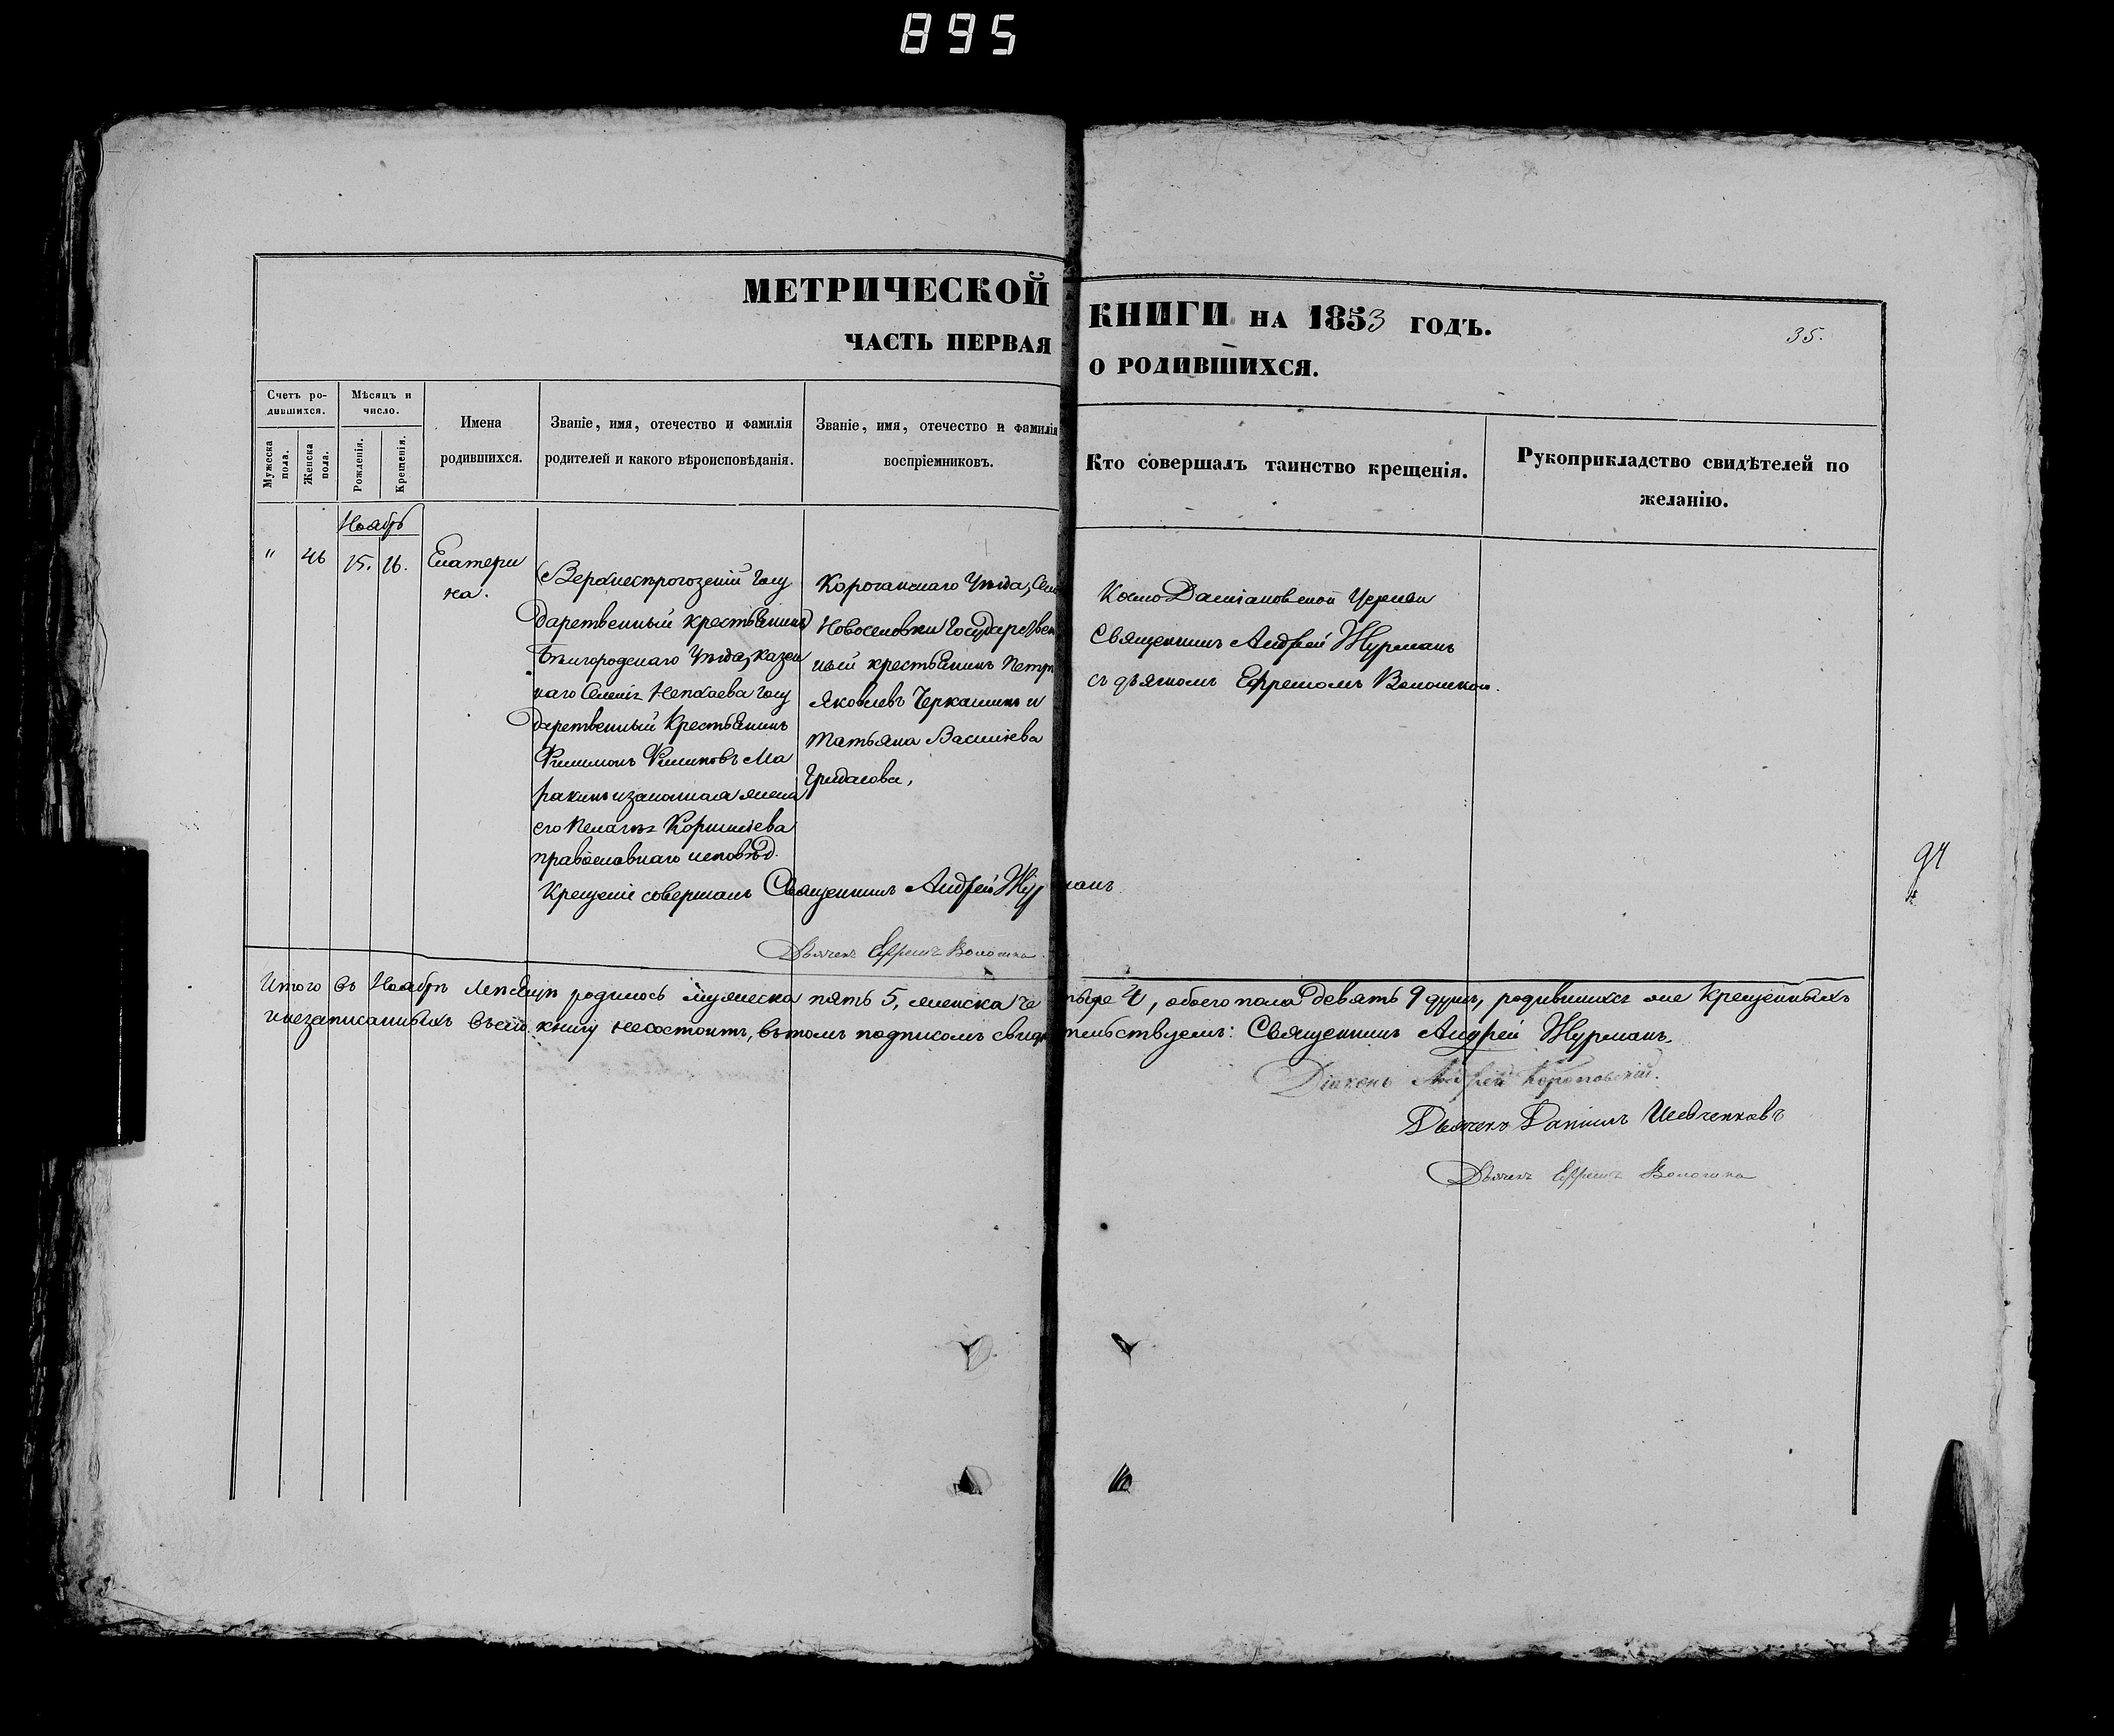 895
МЕТРИЧЕСКОЙ КНИГИ НА 1853 ГОДЪ.
35.
ЧАСТЬ ПЕРВАЯ О РОДИВШИХСЯ.
Счетъ родившихся.
Мужеска пола.
Женска пола.
Мѣсяцъ и число.
Рожденія.
Крещенія.
Имена родившихся.
Званіе, имя, отечество и фамилія родителей и какого вѣроисповѣданія.
Званіе, имя, отечество и фамилія воспріемниковъ.
Кто совершалъ таинство крещенія.
Рукоприкладство свидѣтелей по желанію.
Ноябрь
" 46 15. 16.
Екатери
на.
Госу
дарственный крестьянинъ
Бѣлгородскаго Уѣзда, казен
наго Селенія Нехаева Госу
дарственный Крестьянинъ
Филимонъ Филиповъ Ма
ракинъ изаконная жена
его Пелагѣя Корнилiева
православнаго исповѣд.
Корочанскаго Уѣзда, Села
Новоселовки Государствен
ный крестьянинъ Петръ
Яковлевъ Черкашинъ и
Татьяна Васильева
Гридасова,
Космо Даміановской Церкви
Священникъ Андрей Журманъ
съ дьячкомъ Ефремомъ Волошкою.
Крещеніе совершалъ Священникъ Андрей Журманъ
Дьячекъ Ефремъ Волошка
Итого въ Ноябрѣ Мѣсяцѣ родилось мужеска пять 5, женска четыре 4, обоего пола девять 9 душъ, родившихся же Крещенныхъ
инезаписанныхъ въсію книгу несостоитъ, вътомъ подпискомъ свидѣтельствуемъ: Священникъ Андрей Журманъ.
Діаконъ Андрей
Дьячекъ Даніилъ Шевченковъ
Дьячекъ Ефремъ Волошка
94